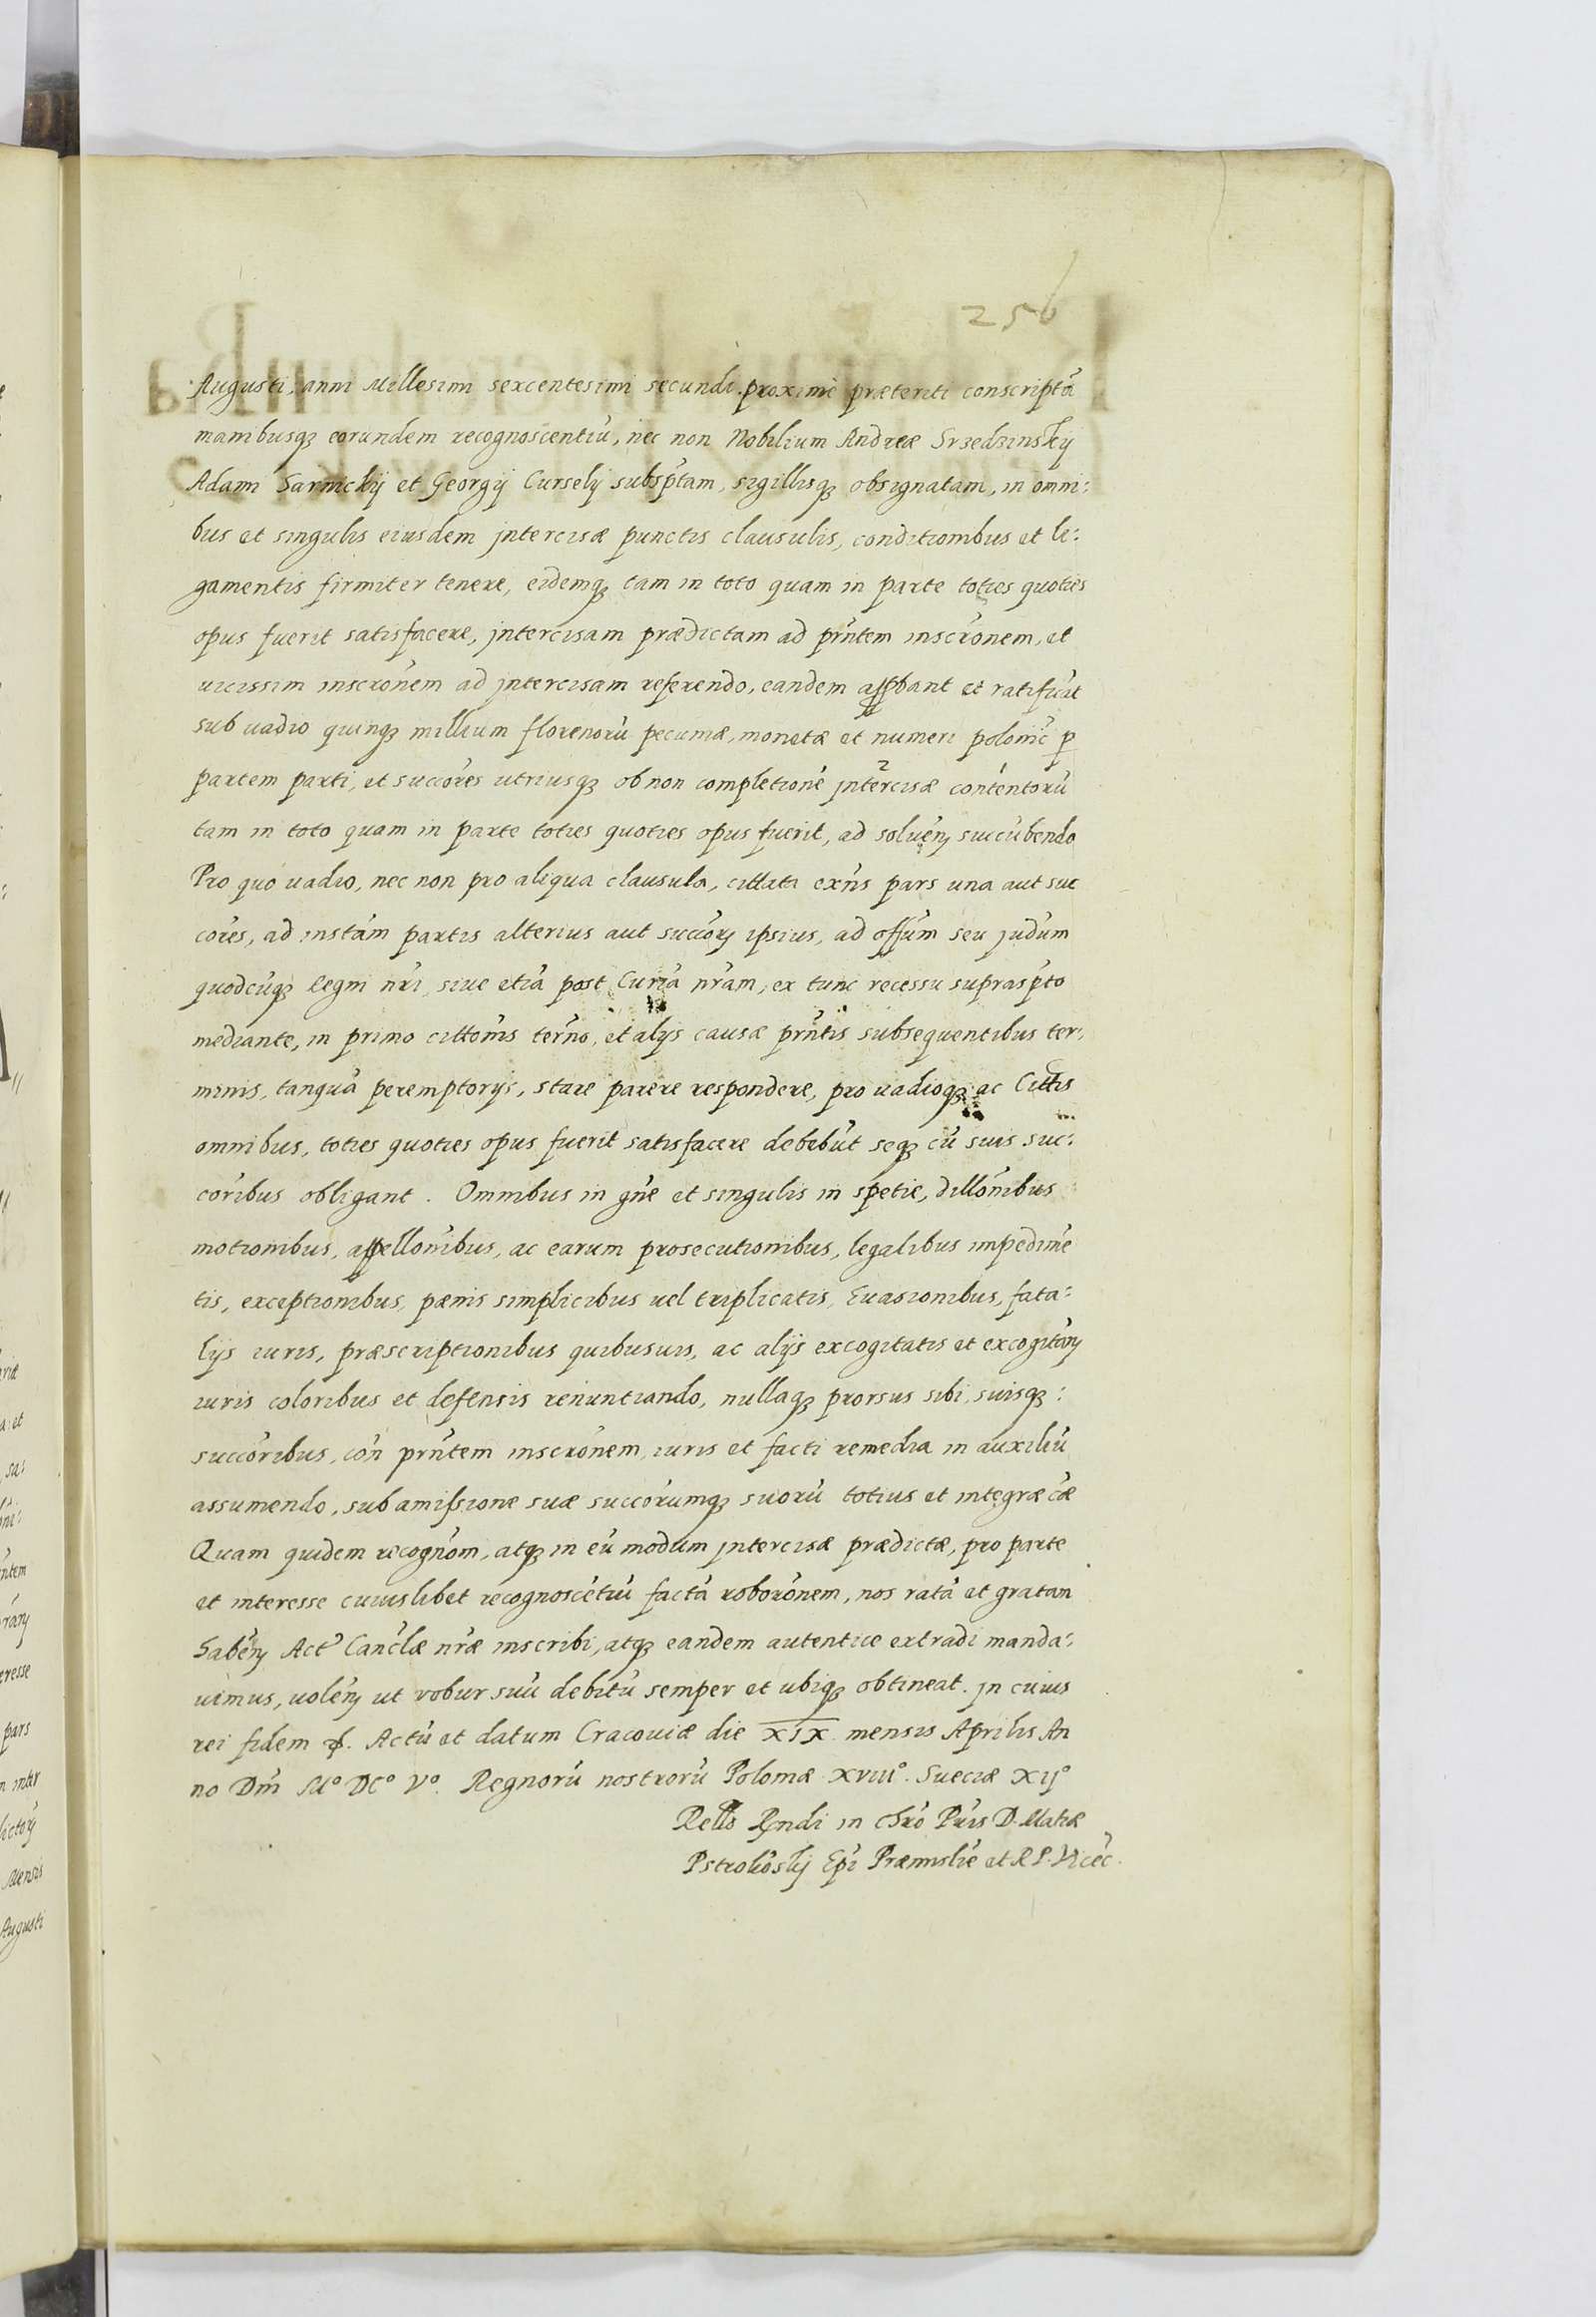 256
Augusti, anni Millesimi sexcentesimi secundi proxime præteriti conscriptā
manibusq₃ eorundem recognoscentiū, nec non Nobilium Andreæ Srzedzinskij
Adami Sarnickij et Georgij Curselij subsptam, sigillisq₃ obsignatam, in omni:
bus et singulis eiusdem jntercisæ punctis clausulis, conditionibus et li:
gamentis firmiter tenere, eidemq₃ tam in toto quam in parte toties quoties
opus fuerit satisfacere, jntercisam prædictam ad prntem inscronem, et
uicissim inscronem ad jntercisam referendo, eandem appbant et ratificāt
sub uadio quinq₃ millium florenorū pecuniæ, monetæ et numeri polonic p
partem parti, et succores utriusq₃ ob non completionē jntercisæ contentorū
tam in toto quam in parte toties quoties opus fuerit, ad soluen succūbendo
Pro quo uadio, nec non pro aliqua clausula, cittati exns pars una aut suc
cores, ad instam partis alterius aut succor ipsius, ad offum seu judum
quodcūq₃ Regni nri, siue etiā post Curiā nram, ex tunc recessu suprasp̄to
mediante, in primo cittonis terno, et alijs causæ prntis subsequentibus ter:
minis, tanquā peremptorijs, stare parere respondere, pro uadioq₃ ac Cittis
omnibus, toties quoties opus fuerit satisfacere debebūt seq₃ cū suis suc:
coribus obligant. Omnibus in gne et singulis in spetie, dillonibus
motionibus, appellonibus, ac earum prosecutionibus, legalibus impedimē
tis, exceptionibus, pænis simplicibus uel triplicatis, Euasionibus, fata:
lijs iuris, præscriptionibus quibusuis, ac alijs excogitatis et excogitan
iuris coloribus et defensis renuntiando, nullaq₃ prorsus sibi, suisq₃:
succoribus, con prntem inscronem, iuris et facti remedia in auxiliū
assumendo, sub amissione suæ succorumq₃ suorū totius et integræ cæ
Quam quidem recognom, atq₃ in eū modum jntercisæ prædictæ, pro parte
et interesse cuiuslibet recognoscētiū factā roboronem, nos ratā et gratam
haben Act Canclæ nræ inscribi, atq₃ eandem autentice extradi manda:
uimus, uolen ut robur suū debitū semper et ubiq₃ obtineat. jn cuius
rei fidem &. Actū et datum Cracouiæ die XIX mensis Aprilis An
no Dni Mº DCº Vº. Regnorū nostrorū Poloniæ XVIIIº. Sueciæ XIJº
Rello Rndi in Chro Pris D. Matiæ
Pstrokoskij Epi Præmislie et R P. Vicec.